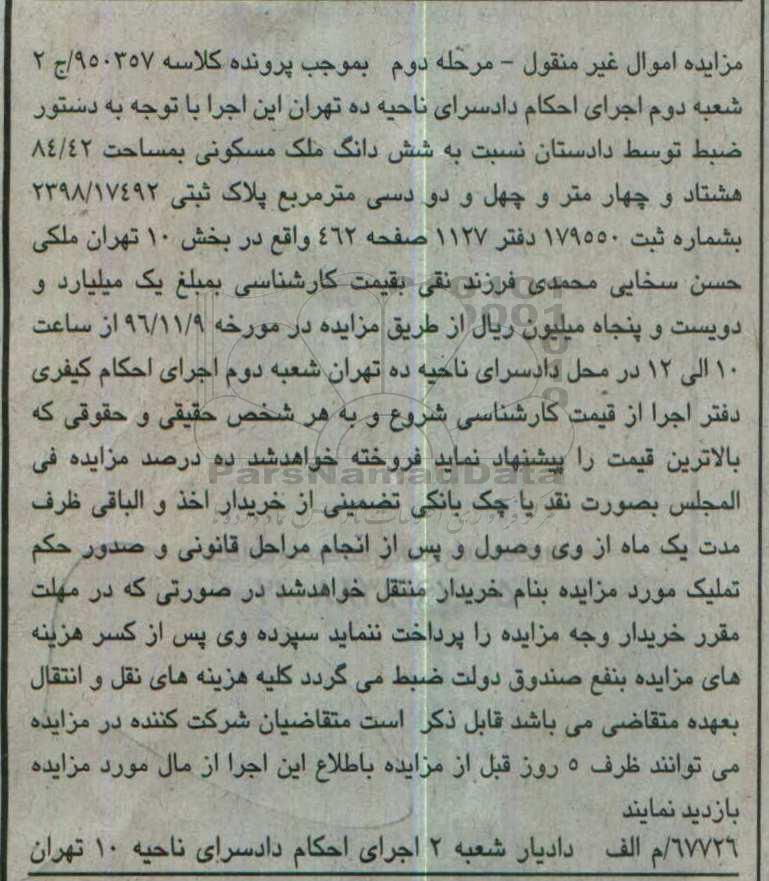 مزایده اموال غیر منقول - مرحله دوم بموجب پرونده کلاسه ۹۵۰۳۵۷/ج ۲
شعبه دوم اجرای احکام دادسرای ناحیه ده تهران این اجرا با توجه به دستور
ضبط توسط دادستان نسبت به شش دانگ ملک مسکونی بمساحت ۸٤/٤۲
هشتاد و چهار متر و چهل و دو دسی مترمربع پلاک ثبتی ۲۳۹۸/۱۷٤۹۲
بشماره ثبت ۱۷۹۵۵۰ دفتر ۱۱۲۷ صفحه ٤٦۲ واقع در بخش ۱۰ تهران ملکی
حسن سخایی محمدی فرزند نقی بقیمت کارشناسی بمبلغ یک میلیارد و
دویست و پنجاه میلیون ریال از طریق مزایده در مورخه ۹٦/۱۱/۹ از ساعت
۱۰ الی ۱۲ در محل دادسرای ناحیه ده تهران شعبه دوم اجرای احکام کیفری
دفتر اجرا از قیمت کارشناسی شروع و به هر شخص حقیقی و حقوقی که
بالاترین قیمت را پیشنهاد نماید فروخته خواهدشد ده درصد مزایده فی
ParsNamadData
المجلس بصورت نقد یا چک بانکی تضمینی از خریدار اخذ و الباقی ظرف
مدت یک ماه از وی وصول و پس از انجام مراحل قانونی و صدور حکم
تملیک مورد مزایده بنام خریدار منتقل خواهدشد در صورتی که در مهلت
مقرر خریدار وجه مزایده را پرداخت ننماید سپرده وی پس از کسر هزینه
های مزایده بنفع صندوق دولت ضبط می گردد کلیه هزینه های نقل و انتقال
بعهده متقاضی می باشد قابل ذکر است متقاضیان شرکت کننده در مزایده
می توانند ظرف ۵ روز قبل از مزایده باطلاع این اجرا از مال مورد مزایده
بازدید نمایند
٦۷۷۲٦/م الف دادیار شعبه ۲ اجرای احکام دادسرای ناحیه ۱۰ تهران